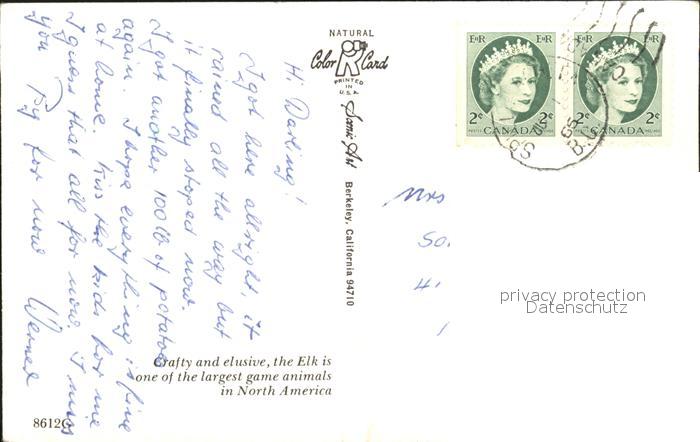 Hi Darling!
I got here allright, it
rained all the way but
it finally stoped now.
I got another 100 lb of potatoe
again. I hope everything is fine
at home. Kiss the kids for me
I guess that all for now. I miss
you By for now Werner
8612C
Crafty and elusive, the Elk is
one of the largest game animals
in North America
NATURAL
Color Card
PRINTED
IN
U.S.A.
Scenic Art
Berkeley, California 94710
EIIR EIIR
2¢ 2¢
CANADA
POSTES POSTAGE
EIIR EIIR
2¢ 2¢
CANADA
POSTES POSTAGE
B.C.
Mrs
So.
4.
privacy protection
Datenschutz